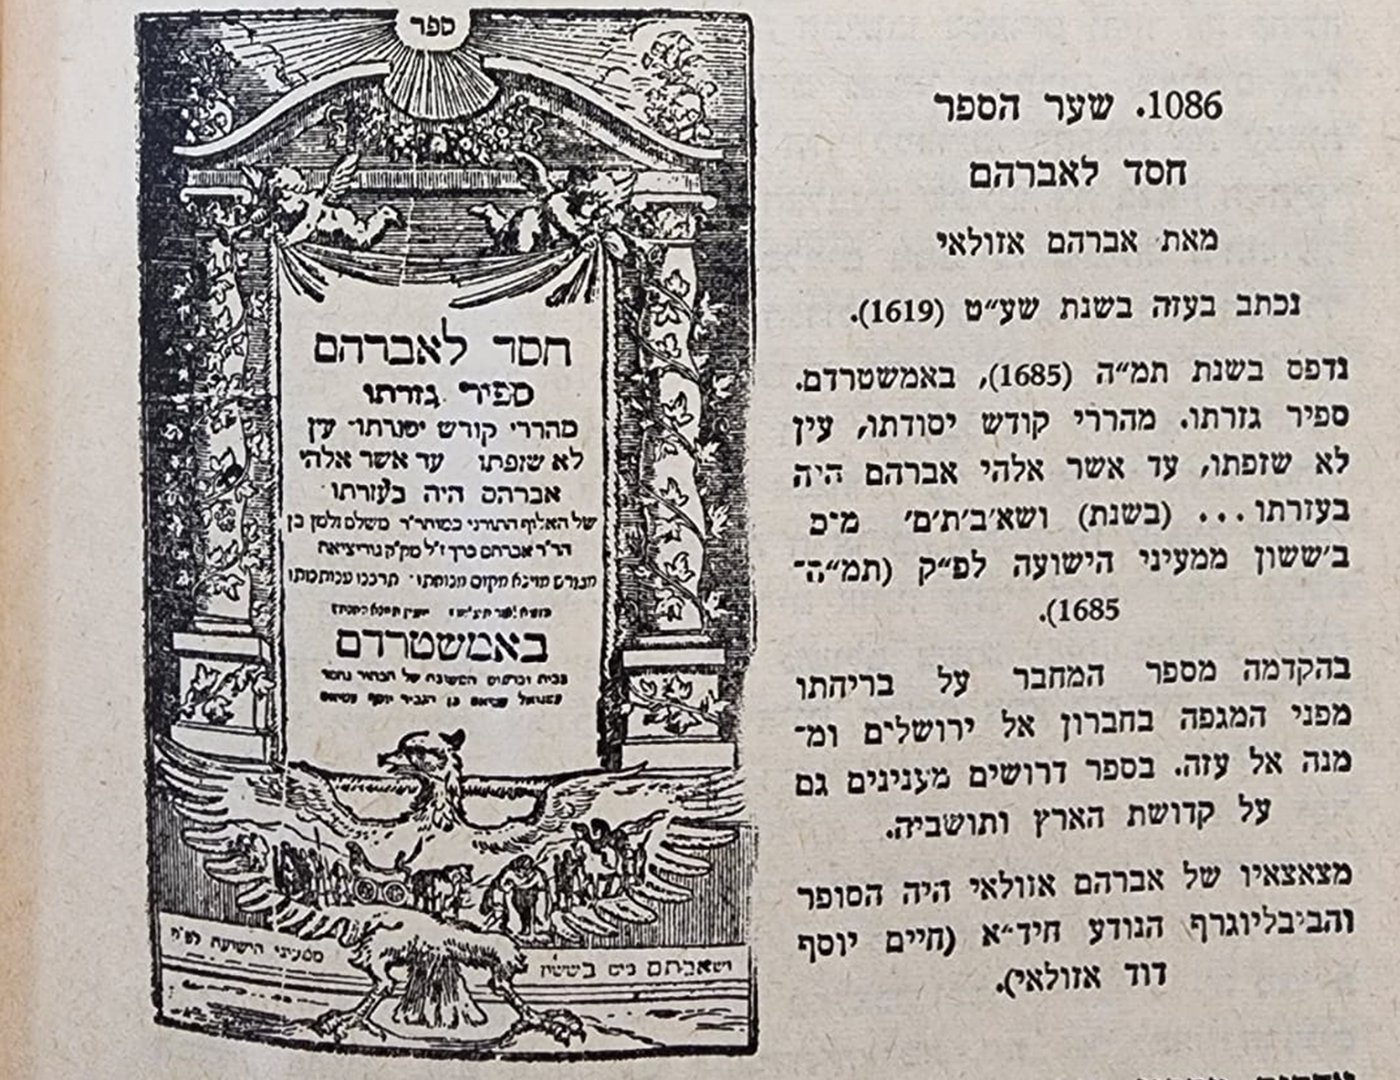 ספר
חסד לאברהם
ספיר גזרתו
מהררי קודש יסודתו עין
לא שזפתו עד אשר אלהי
אברהם היה בעזרתו
של האלוף התורני כמוהר"ר משלם זלמן בן
הר"ר אברהם ברך ז"ל מק"ק גוריציאה
באמשטרדם
בבית ובדפוס
עמנואל עטיאס בן הגביר יוסף עטיאס
ושאבתם מים בששון
ממעיני הישועה לפ"ק
1086. שער הספר
חסד לאברהם
מאת אברהם אזולאי
נכתב בעזה בשנת שע"ט (1619).
נדפס בשנת תמ"ה (1685), באמשטרדם.
ספיר גזרתו. מהררי קודש יסודתו, עין
לא שזפתו, עד אשר אלהי אברהם היה
בעזרתו... (בשנת) ושא'ב'ת'ם' מ־מ
ב'ששון ממעיני הישועה לפ"ק (תמ"ה־
1685).
בהקדמה מספר המחבר על בריחתו
מפני המגפה בחברון אל ירושלים ומ־
מנה אל עזה. בספר דרושים מענינים גם
על קדושת הארץ ותושביה.
מצאצאיו של אברהם אזולאי היה הסופר
והביבליוגרף הנודע חיד"א (חיים יוסף
דוד אזולאי).